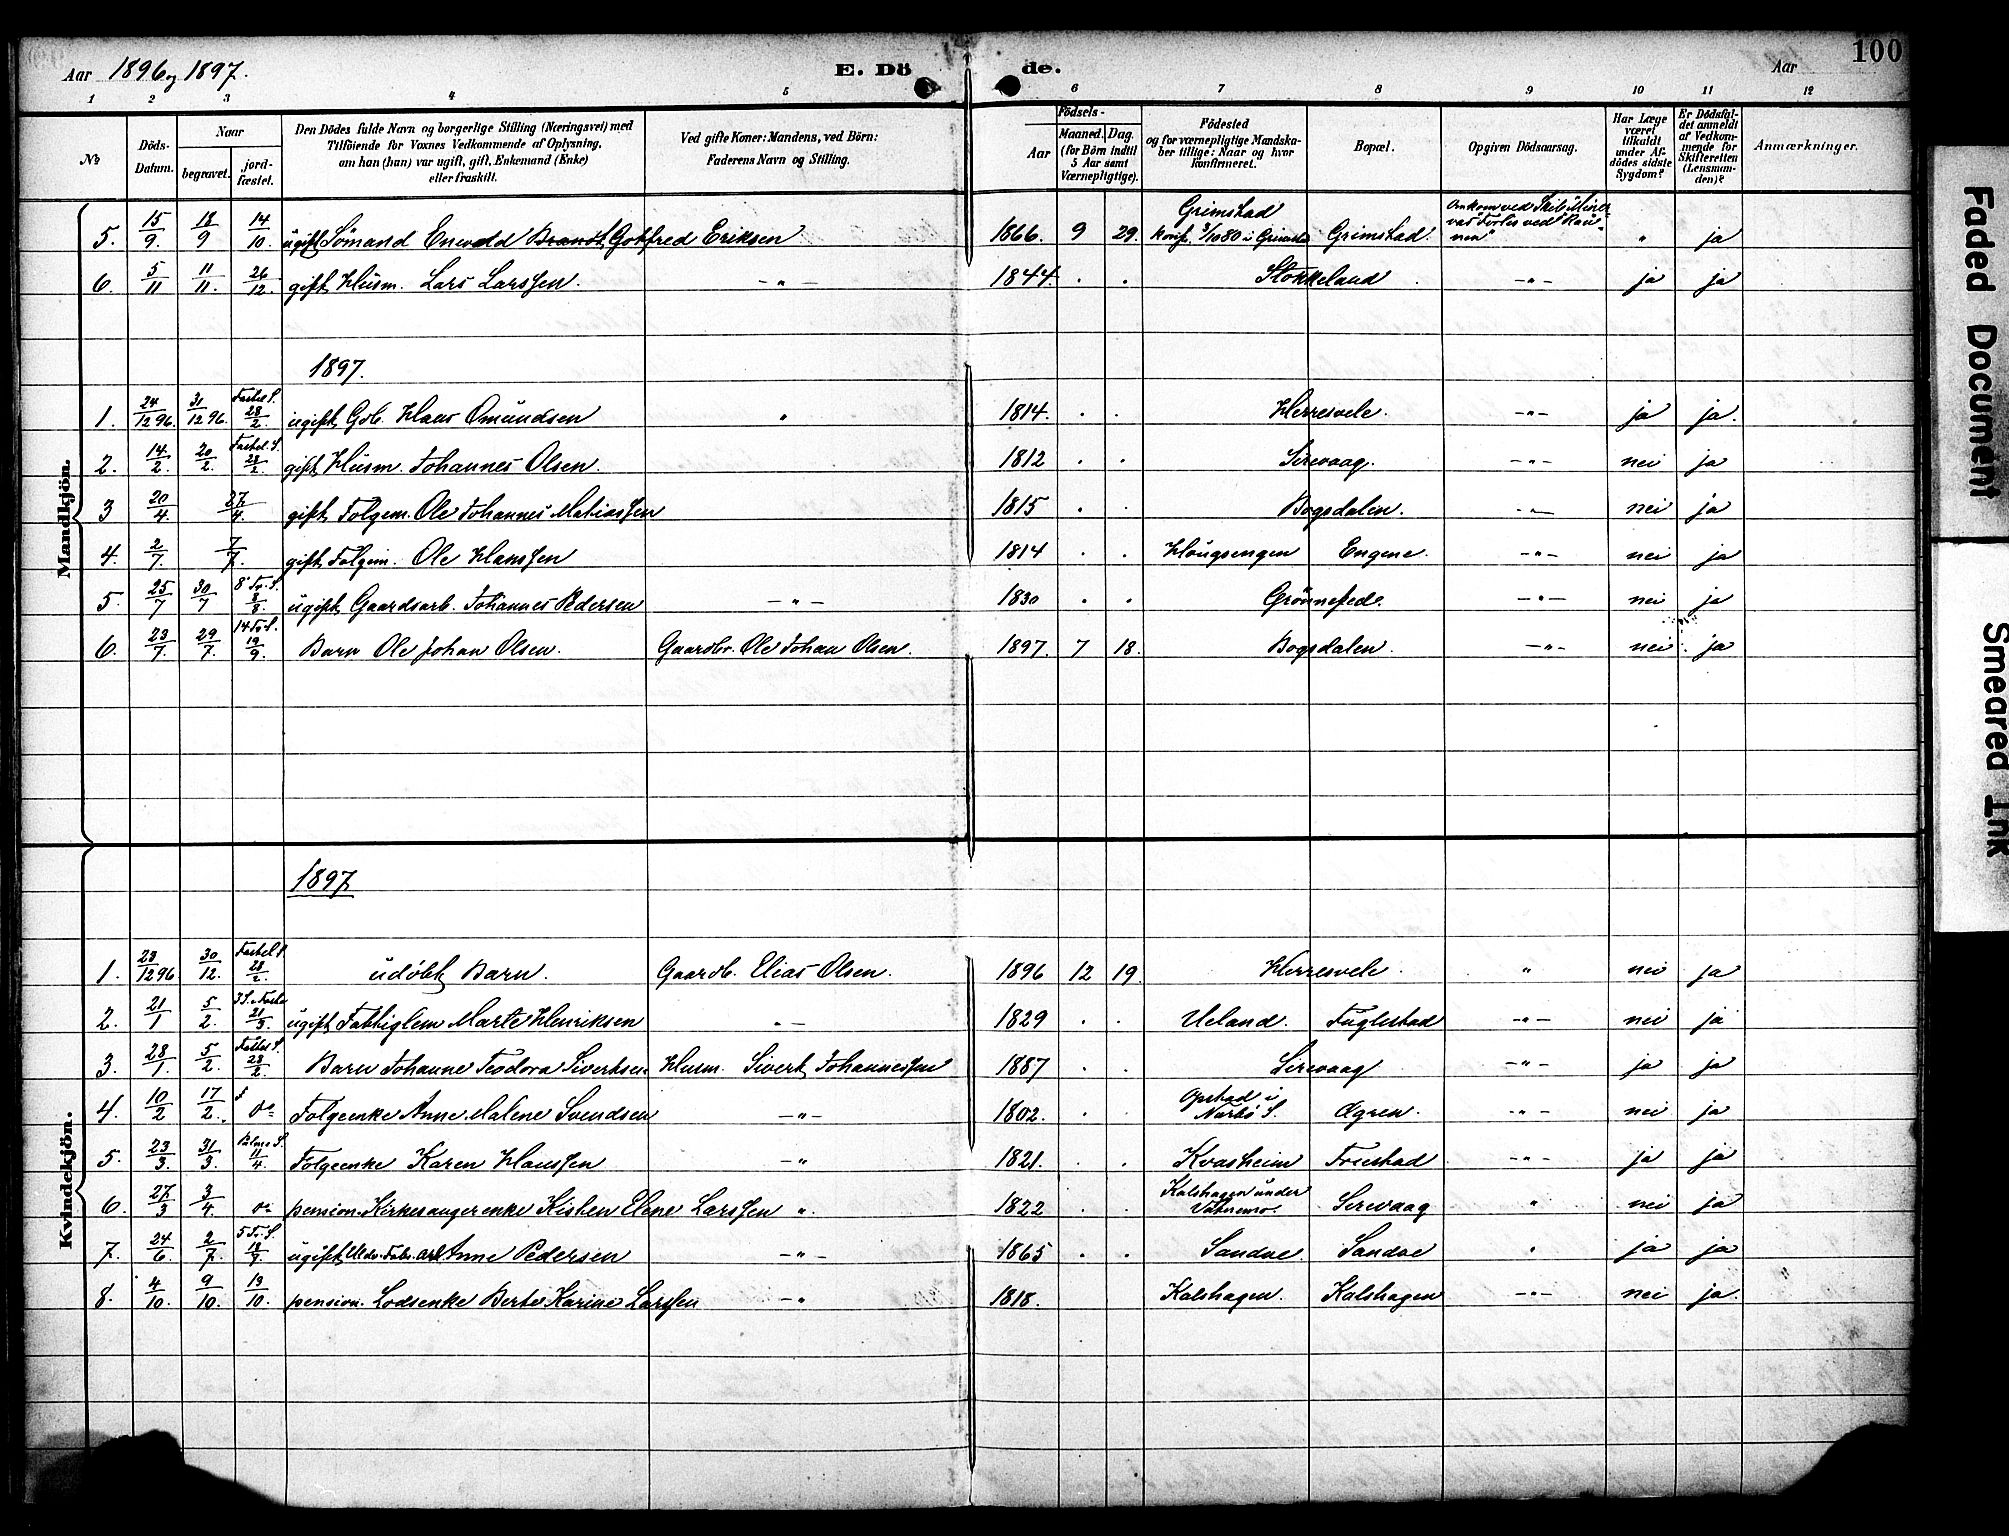 Aar 1896 og 1897. E. Dö de. Aar 100
1 2 3 4 5 6 7 8 9 10 11 12
No Döds-Datum. Naar begravet. jord-fæstet. Den Dödes fulde Navn og borgerlige Stilling (Næringsvei) med Tilföiende for Voxnes Vedkommende af Oplysning, om han (hun) var ugift, gift, Enkemand (Enke) eller fraskilt. Ved gifte Koner: Mandens, ved Börn: Faderens Navn og Stilling. Födsels- Aar Maaned. Dag. (for Börn indtil 5 Aar samt Værnepligtige). Födested og for værnepligtige Mandskaber tillige: Naar og hvor Konfirmeret. Bopæl. Opgiven Dödsaarsag. Har Læge været tilkaldt under Afdödes sidste Sygdom? Er Dödsfaldet anmeldt af Vedkommende for Skifteretten (Lensmanden)? Anmærkninger.
Mandkjön.
5. 15/9. 18/9 14/10. ugift Sömand Enevold Brandt Gotfred Eriksen " 1866. 9 29. Grimstad Konf. 3/10 80 i Grimstad Grimstad. Omkom ved Skib "Minervas" Forlis ved " ja
6. 5/11 11/11. 26/12 gift Husm. Lars Larssen. -"- 1844. . . Stokkeland -"- ja ja
1897.
1. 24/12 96. 31/12 96. Fastel. S. 28/2. ugift Gdb. Hans Omundsen " 1814. . . Herresvele. -"- ja ja.
2. 14/2. 20/2. Fastel. S. 28/2 gift Husm. Johannes Olsen. 1812 . . Sirevaag. -"- nei ja
3 20/4. 27/4. gift Folgem. Ole Johannes Matiassen 1815 . . Bogsdalen. -"- nei ja
4. 2/7. 7/7. gift Folgem. Ole Hanssen 1814 . . Haugsengen Engene. -"- nei ja
5. 25/7 30/7 8' Tr. S. 8/8. ugift Gaardsarb. Johannes Pedersen -"- 1830 . . Grönnested. -"- nei ja
6. 23/7. 29/7. 14 Tr. S. 19/9. Barn Ole Johan Olsen. Gaardbr. Ole Johan Olsen. 1897. 7 18. Bogsdalen. -"- nei ja
Kvindekjön.
1897
1. 23/12 96 30/12. Fastel. S. 28/2. udöbt Barn. Gaardb. Elias Olsen. 1896 12 19. Herresvele. " nei ja
2. 21/1 5/2. 3 S. i Faste 21/3. ugift Fattiglem Marte Henriksen "- 1829 . . Ueland. Fuglestad -"- nei ja
3. 28/1. 5/2. Fastel. S. 28/2. Barn Johanne Teodora Sivertsen Husm. Sivert Johannessen 1887 . . Sirevaag -"- ja ja
4. 10/2 17/2. do Folgeenke Anne Malene Svendsen -"- 1802. . . Opstad i Nærbö S. Ogren. -"- nei ja
5. 23/3. 31/3. Palme S. 11/4. Folgeenke Karen Hanssen -" 1821. . . Kvasheim Friestad -"- ja ja
6. 27/3 3/4. do pension. Kirkesangerenke Kisten Elene Larssen " 1822 . . Kalshagen under Vatnemo. Sirevaag " nei ja
7. 24/6. 2/7. 5 Tr. S. 18/7. ugift Anne Pedersen -"- 1865 . . Sandve. Sandve " ja ja
8. 4/10. 9/10. 13/10. pension. Lodsenke Berte Karine Larssen -" 1818. Kalshagen. Kalshagen -"- nei ja.
Faded Document
Smeared Ink